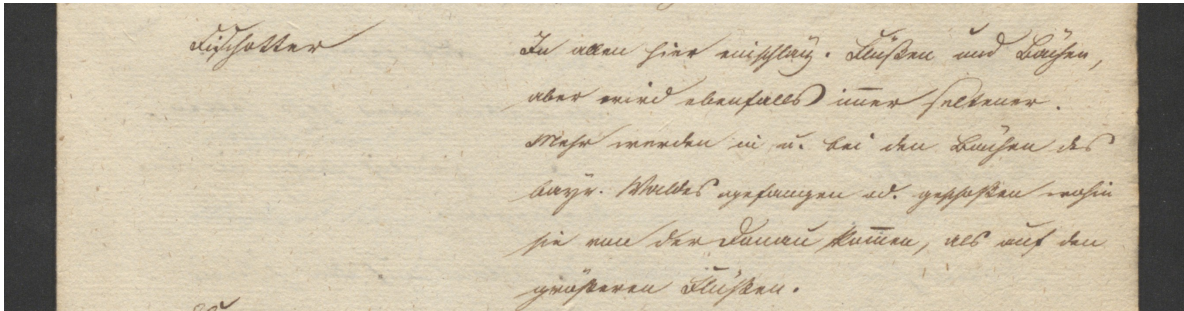 Fischotter
In allen hier einschläg. Flüßen und Bächen,
aber wird ebenfalls im̅er seltener.
Mehr werden in u. bei den Bächen des
bayr. Waldes gefangen od. geschoßen wohin
sie von der Donau kom̅en, als auf den
größeren Flüßen.